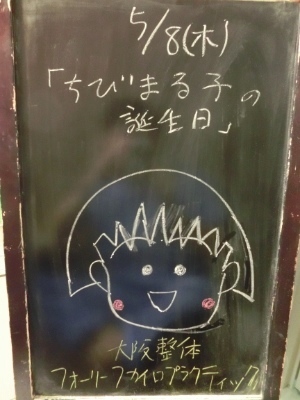 5/8(木)
「ちびまる子の
誕生日」
大阪整体
フォーリーフカイロプラクティック